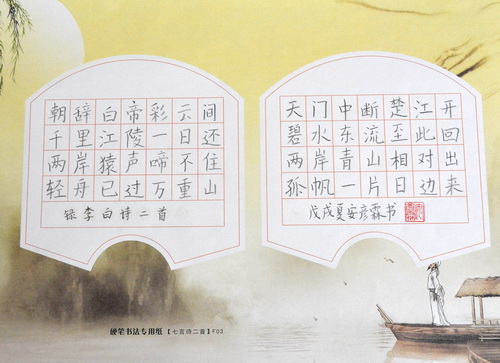 朝辞白帝彩云间
千里江陵一日还
两岸猿声啼不住
轻舟已过万重山
录李白诗二首
天门中断楚江开
碧水东流至此回
两岸青山相对出
孤帆一片日边来
戊戌夏安彦霖书
硬笔书法专用纸【七言诗二首】F03